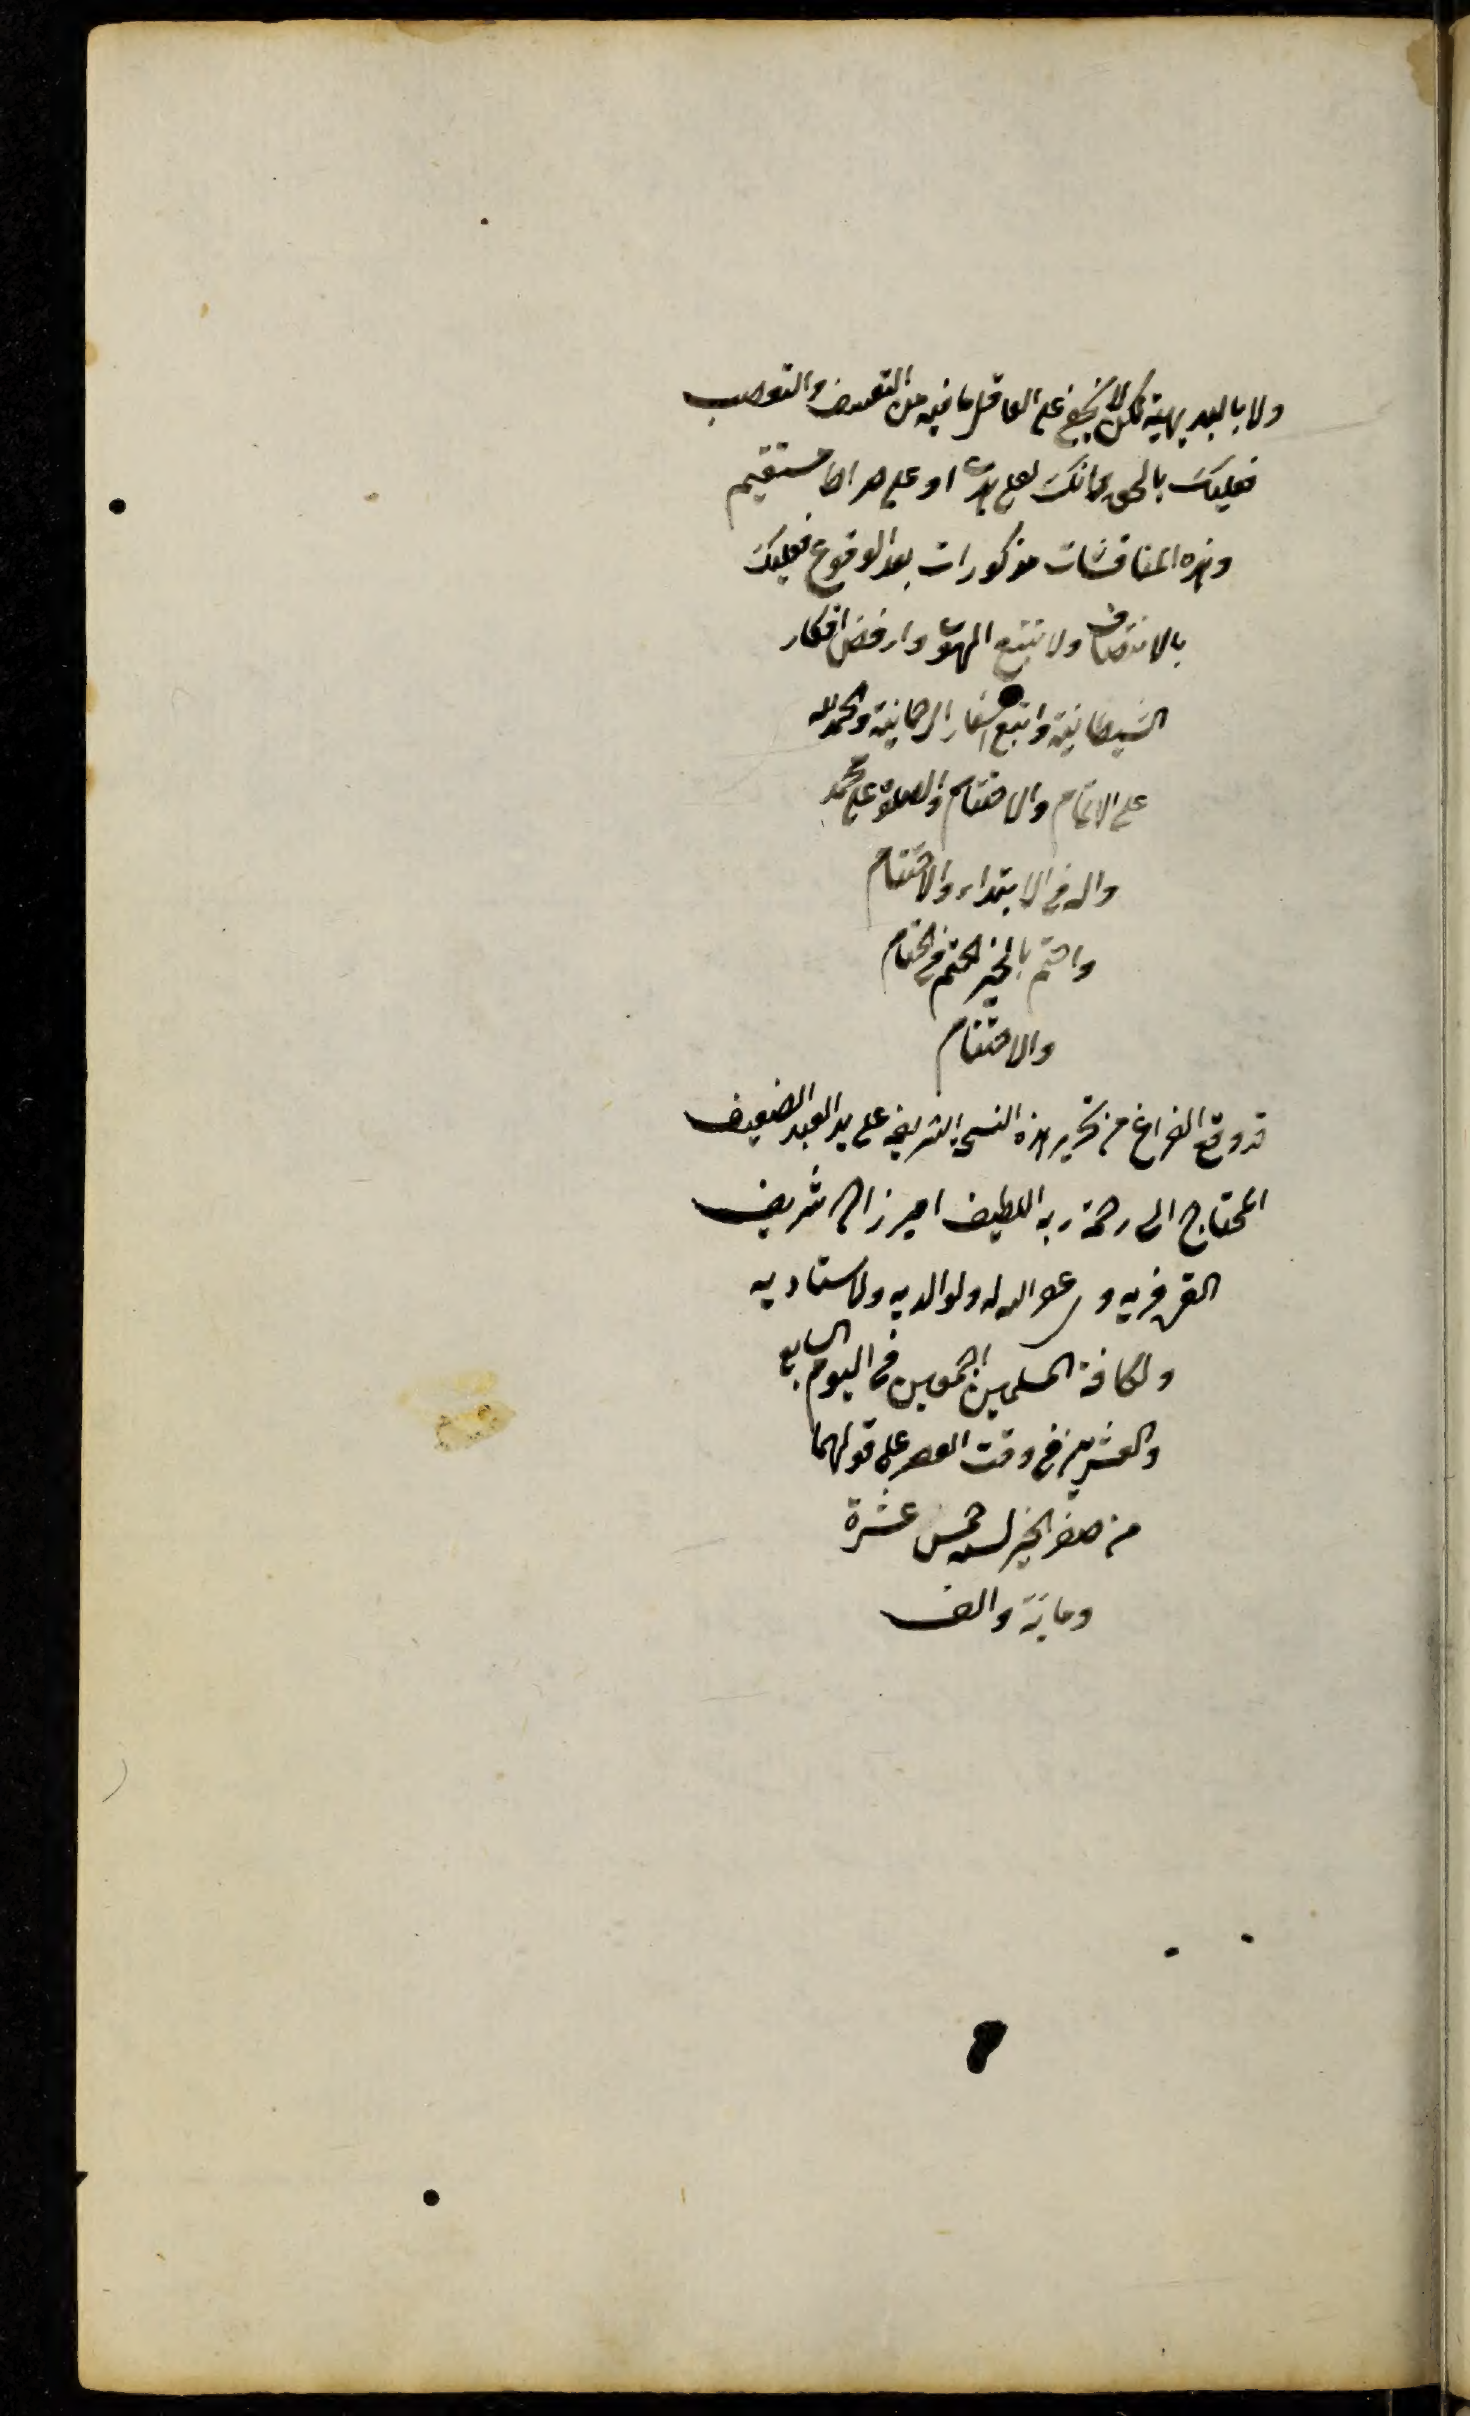 ولا بالبديهية لكن لا يخفى على العاقل ما فيه من التعسف والتعصب
فعليك بالحق فانك لعلى هدى او على صراط مستقيم
وهذه المناقشات مذكورات بعد الوقوع فعليك
بالانصاف ولا تتبع الهوى وارفض افكار
الشيطانية واتبع الرحمانية والحمد لله
على الاتمام والاختتام والصلوة على محمد
واله في الابتداء والاختتام
واختم بالخير في الختام
والاختتام
قد وقع الفراغ من تحرير هذه النسخة الشريفة على يد العبد الضعيف
المحتاج الى رحمة ربه اللطيف شريف
غفر الله له ولوالديه ولاستاديه
ولكافة المسلمين اجمعين في اليوم السابع
والعشرين في وقت العصر على قولهما
من صفر الخير لسنة خمس عشرة
ومائة والف